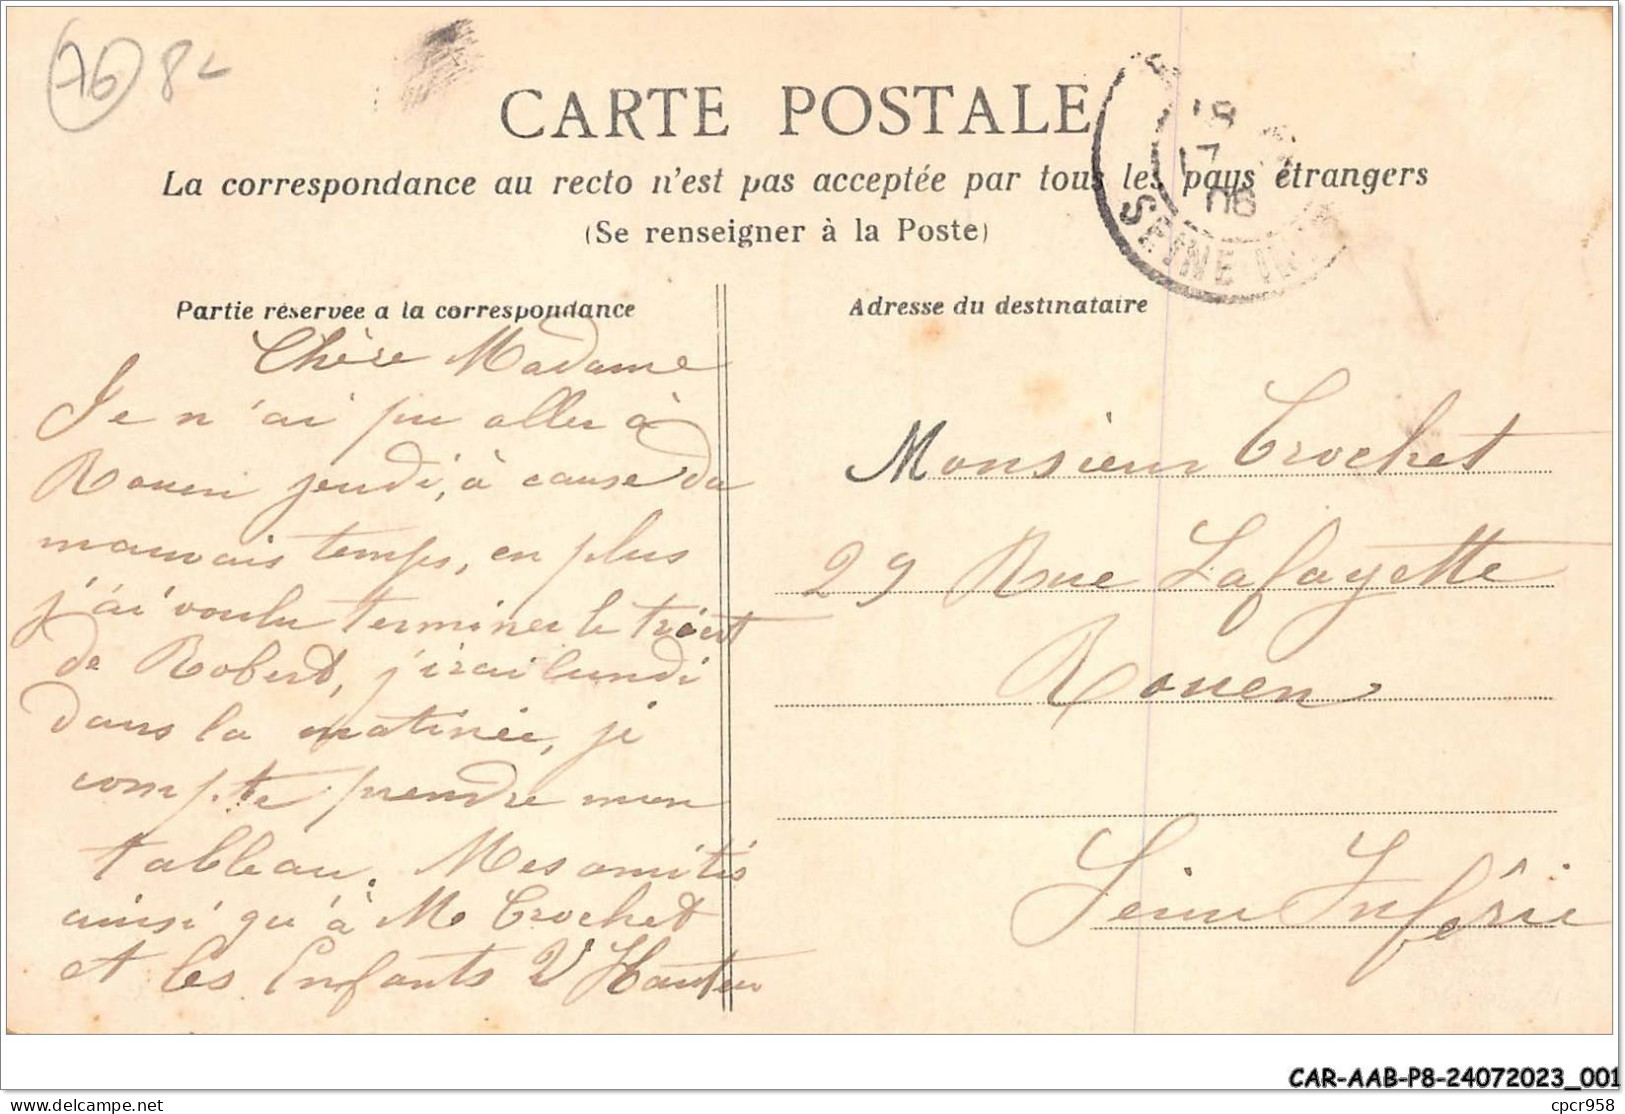 76 8
CARTE POSTALE
La correspondance au recto n'est pas acceptée par tous les pays étrangers
(Se renseigner à la Poste)
SEINE INF
18
7
06
Partie réservée a la correspondance
Chère Madame
Je n'ai pu aller à
Rouen jeudi, à cause du
mauvais temps, en plus
j'ai voulu terminer le tricot
de Robert, j'irai lundi
dans la matinée, je
compte prendre mon
tableau. Mes amitiés
ainsi qu'à M Crochet
et les Enfants V Hauteu
Adresse du destinataire
Monsieur Crochet
29 Rue Lafayette
Rouen
Seine Inférie
CAR-AAB-P8-24072023_001
delcampe.net
cpcr958